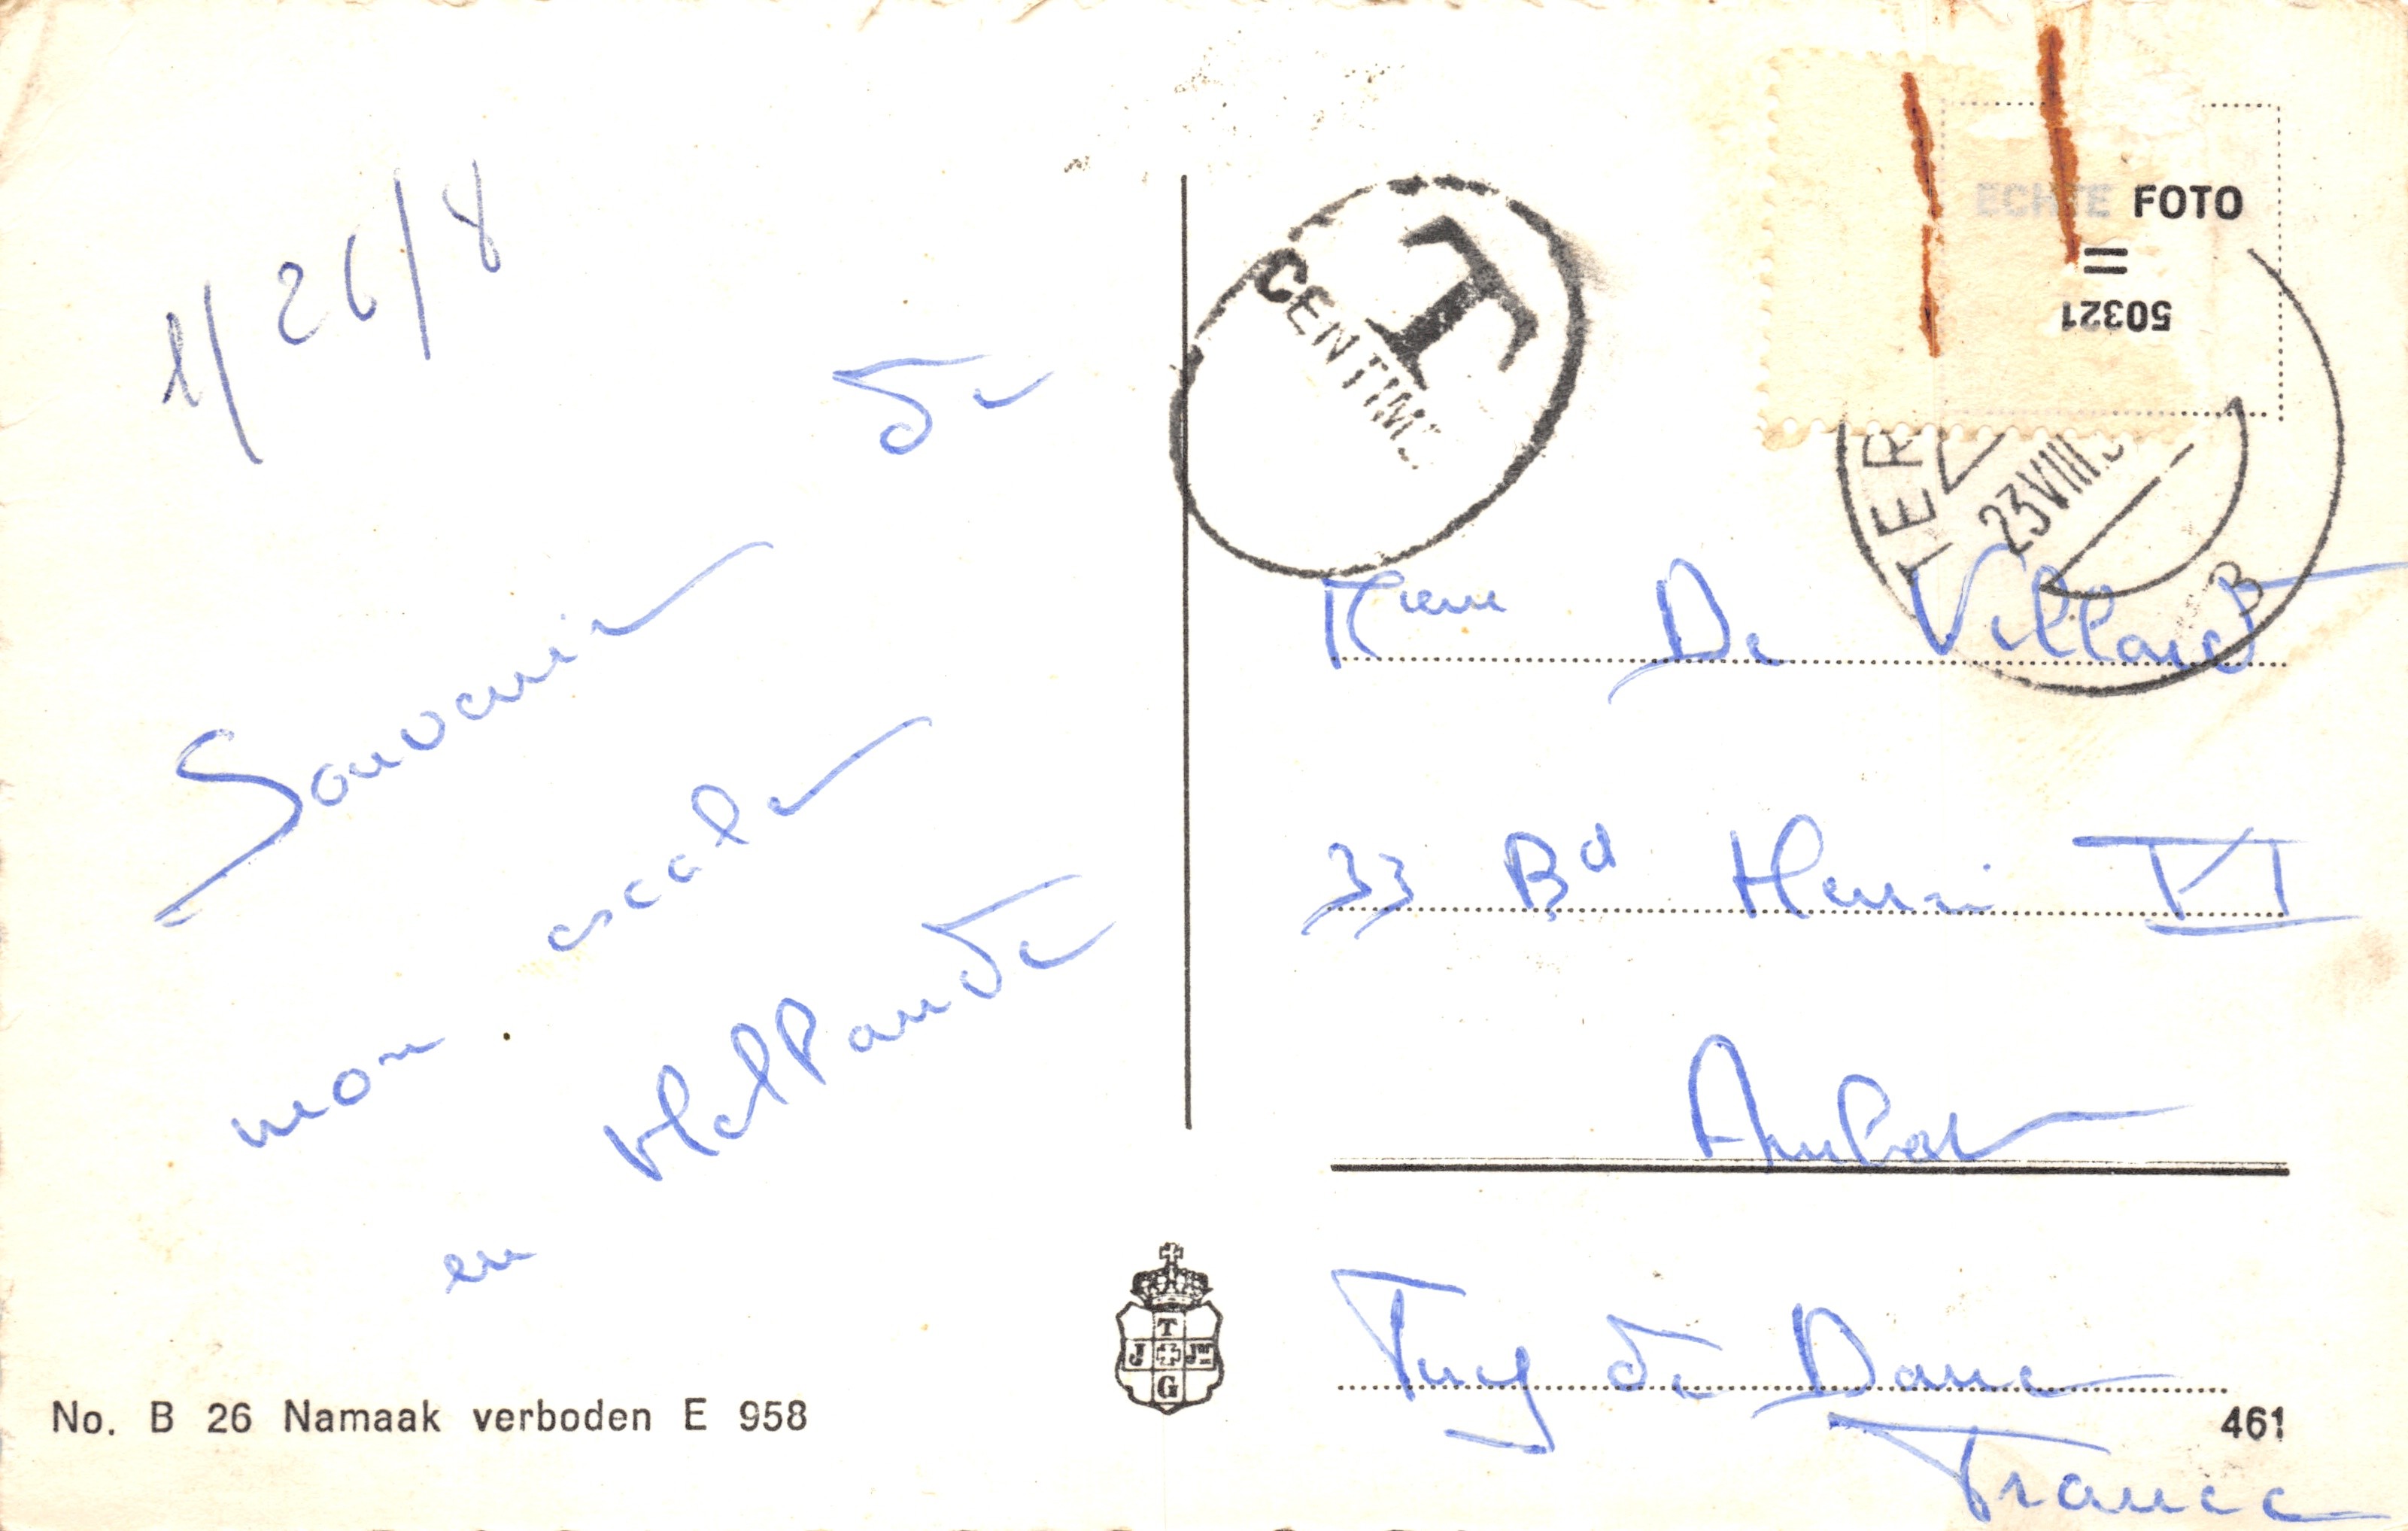 1/26/8
Souvenir de
mon escale
en Hollande
No. B 26 Namaak verboden E 958
T
J JW
G
T
CENTIM
ECHTE FOTO
=
50321
TER
23 VIII
B
Mme De Villard
33 Bd Henri VI
Ambert
Puy de Dome
461
France